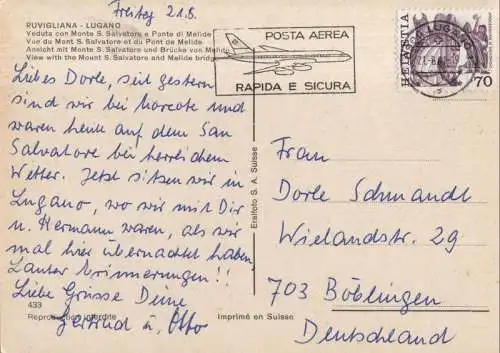 Freitag 21.8.
RUVIGLIANA - LUGANO
Veduta con Monte S. Salvatore e Ponte di Melide
Vue du Mont S. Salvatore et du Pont de Melide
Ansicht mit Monte S. Salvatore und Brücke von Melide
View with the Mount S. Salvatore and Melide bridge
POSTA AEREA
RAPIDA E SICURA
HELVETIA
70
Liebes Dorle, seit gestern
sind wir bei Morcote und
waren heute auf dem San
Salvatore bei herrlichem
Wetter. Jetzt sitzen wir in
Lugano, wo wir mit Dir
u. Hermann waren, als wir
mal hier übernachtet haben.
Lauter Erinnerungen!!
Liebe Grüsse Deine
Gertrud u. Otto
433
Reproduction interdite
Imprimé en Suisse
Eralfoto S. A. Suisse
Frau
Dorle Schmandt
Wielandstr. 29
703 Böblingen
Deutschland